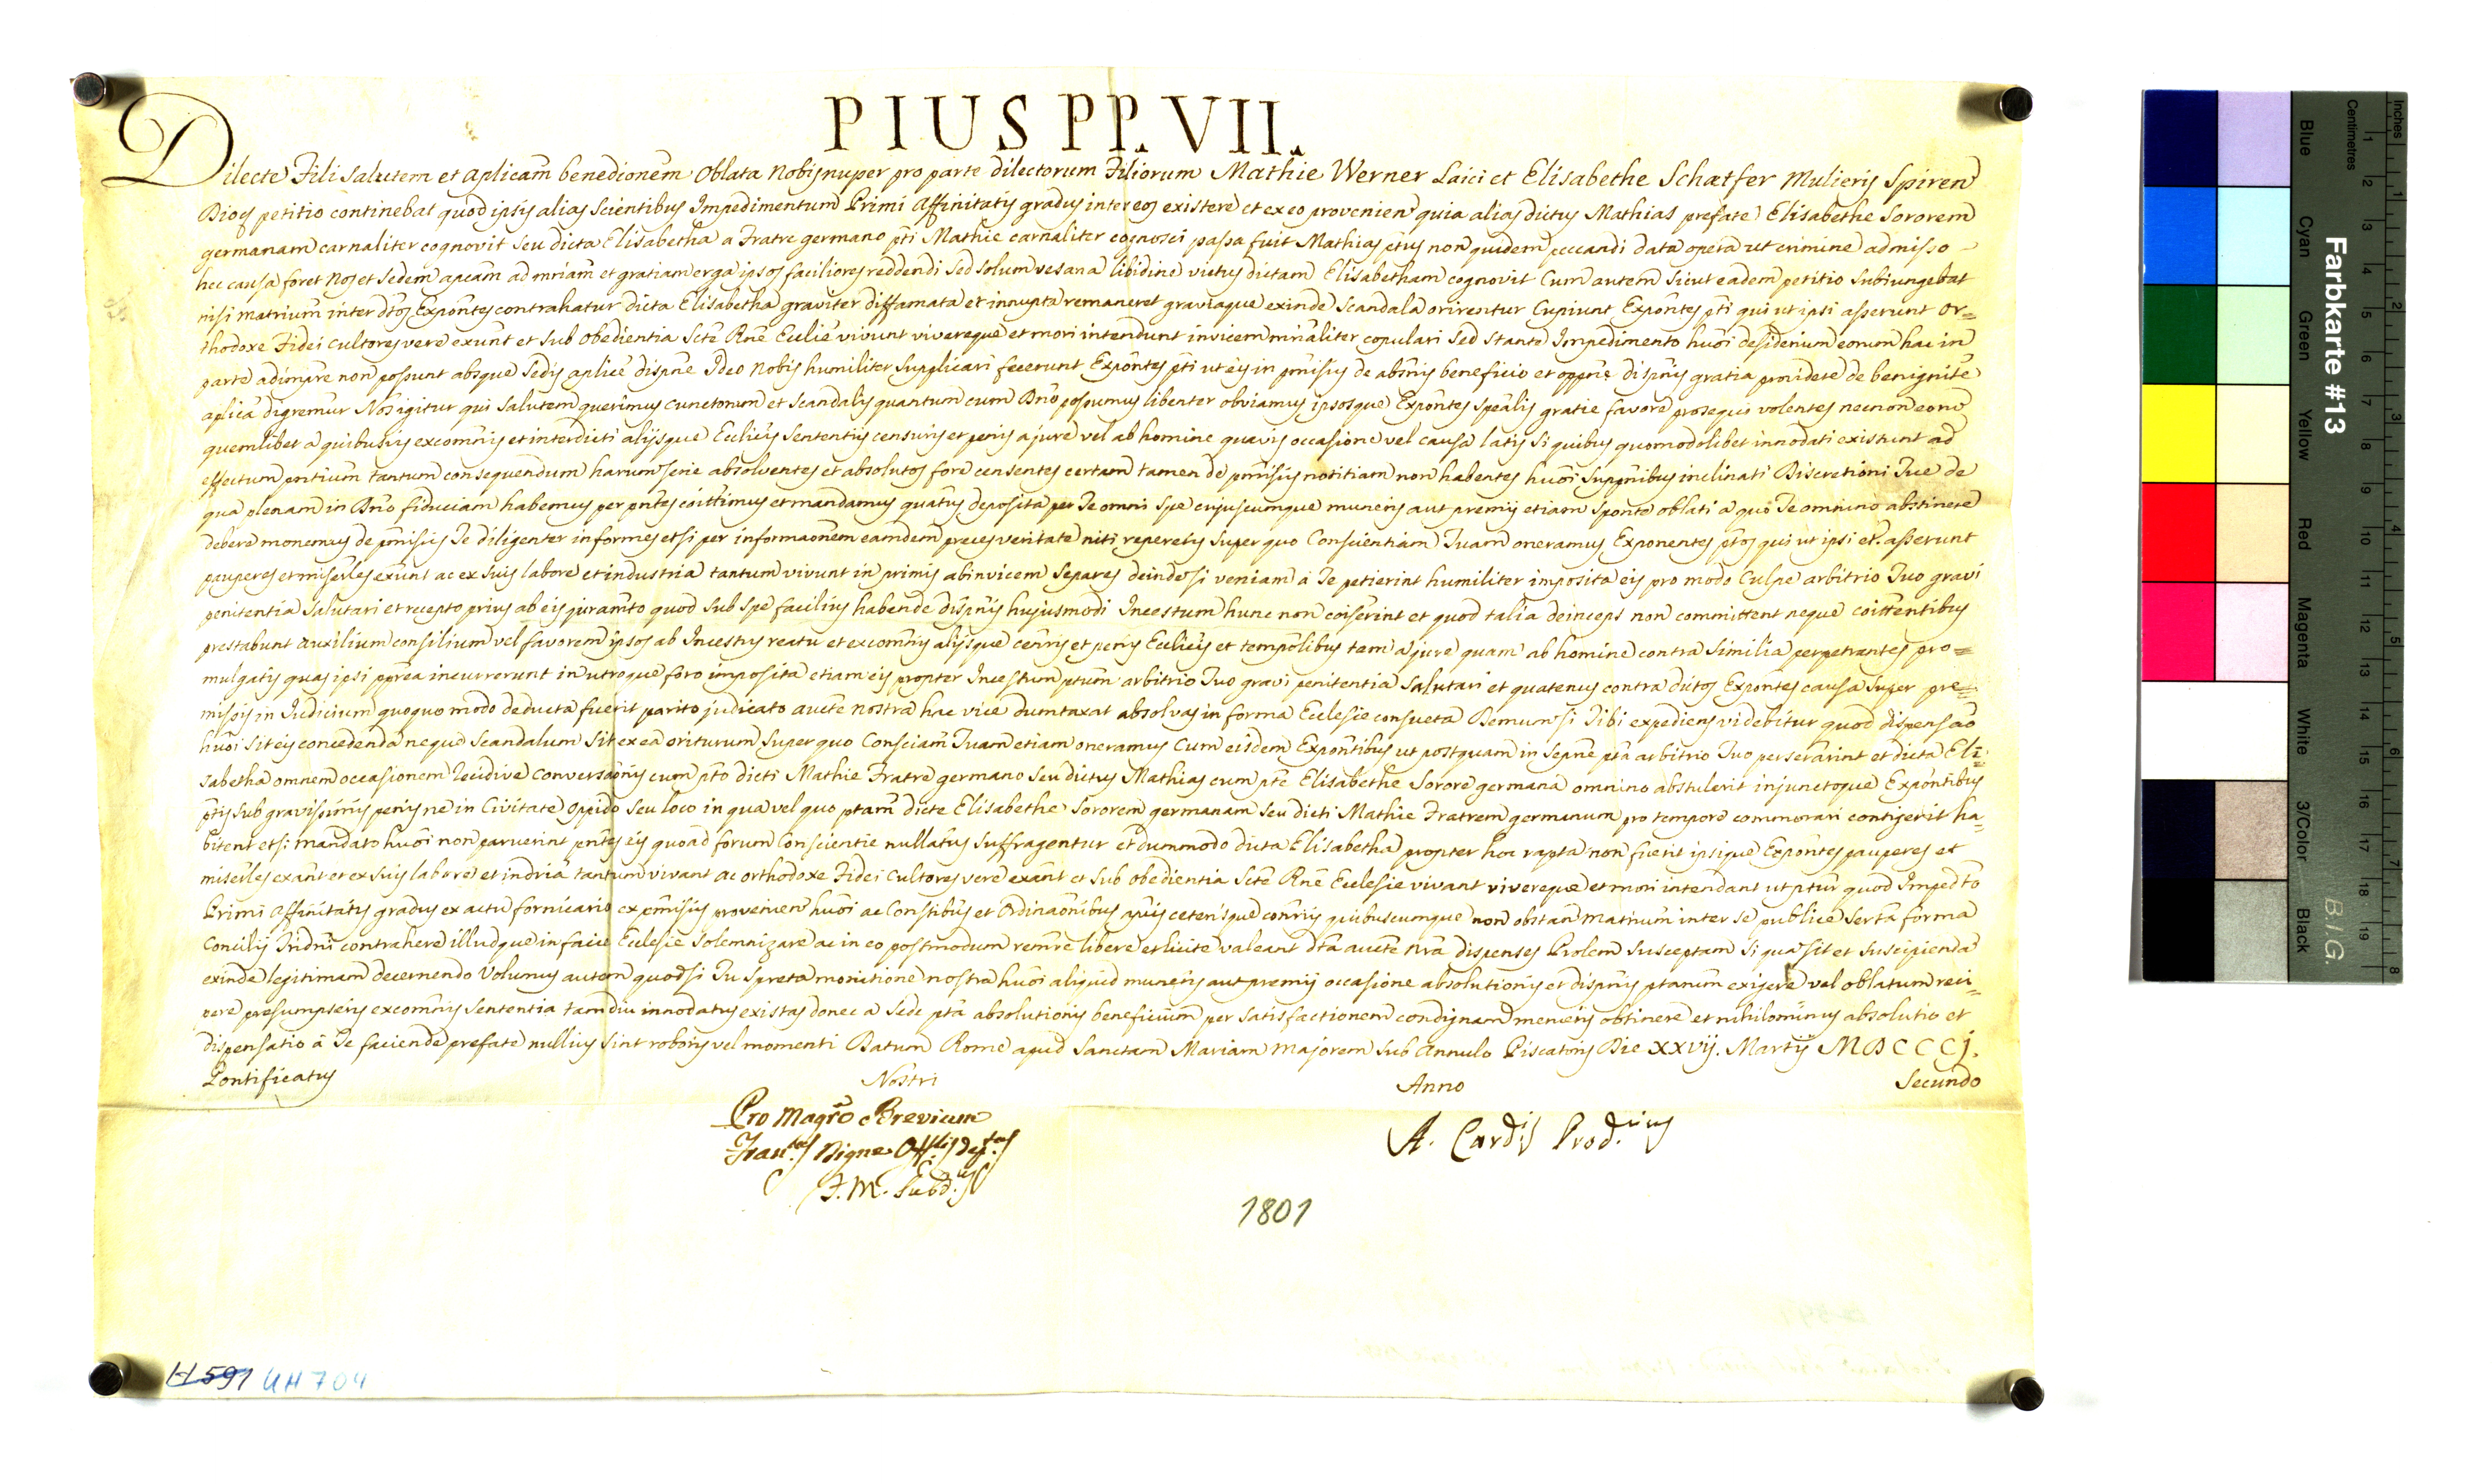 PIUS PP. VII.
Dilecte Fili salutem et aplicam benedionem Oblata Nobis nuper pro parte dilectorum Filiorum Mathie Werner Laici et Elisabethe Schætfer Mulieris Spiren
Dioes petitio continebat quod ipsis alias scientibus Impedimentum Primi Affinitatis gradus inter eos existere et ex eo provenien quia alias dictus Mathias prefate Elisabethe Sororem
germanam carnaliter cognovit seu dicta Elisabetha a Fratre germano pti Mathie carnaliter cognosci passa fuit Mathias ptus non quidem peccandi data opera ut crimine admisso
hec causa foret Nos et Sedem apcam ad mniam et gratiam erga ipsos faciliores reddendi sed solum vesana libidine victus dictam Elisabetham cognovit Cum autem sicut eadem petitio subiungebat
nisi matrium inter dtos Expontes contrahatur dicta Elisabetha graviter diffamata et innupta remaneret graviaque exinde scandala orirentur Cupiunt Expontes pti qui ut ipsi asserunt or=
thodoxe Fidei cultores vere exunt et sub obedientia Scte Rne Ecclie vivunt vivereque et mori intendunt invicem mnialiter copulari Sed stante Impedimento huoi desiderium eorum hac in
parte adimpre non possunt absque Sedis aplice dispne Ideo Nobis humiliter supplicari fecerunt Expontes pti ut eis in pmisis de abnis beneficio et oppne dispnis gratia providere de benignite
aplica digremur Nos igitur qui salutem querimus cunctorum et scandalis quantum cum Dno possumus libenter obviamus ipsosque Expontes spealis gratie favore prosequi volentes necnon eorum
quemlibet a quibusvis excomnis et interdicti alijsque Eccliis sententiis censuris et penis a jure vel ab homine quavis occasione vel causa latis si quibus quomodolibet innodati existunt ad
effectum pntium tantum consequendum harum serie absolventes et absolutos fore censentes certam tamen de pmisis notitiam non habentes huoi supponibus inclinati Discretioni Tue de
qua plenam in Dno fiduciam habemus per pntes coittimus et mandamus quatus deposita per Te omni spe cujuscumque muneris aut premij etiam sponte oblati a quo Te omnino abstinere
debere monemus de pmisis Te diligenter informes et si per informaonem eamdem preces veritate niti repereris super quo Conscientiam Tuam oneramus Exponentes ptos qui ut ipsi et. asserunt
pauperes et miserles exunt ac ex suis labore et industria tantum vivunt in primis abinvicem separes deinde si veniam a Te petierint humiliter imposita eis pro modo Culpe arbitrio Tuo gravi
penitentia salutari et recepto prius ab eis juramto quod sub spe facilius habende dispnis hujusmodi Incestum hunc non coiserint et quod talia deinceps non committent neque coittentibus
prestabunt auxilium consilium vel favorem ipsos ab Incestus reatu et excomnis alijsque cenris et penis Eccliis et tempolibus tam a jure quam ab homine contra similia perpetrantes pro=
mulgatis quas ipsi pprea incurrerunt in utroque foro imposita etiam eis propter Incestum ptum arbitrio Tuo gravi penitentia salutari et quatenus contra dictos Expontes causa super pre=
missis in Judicium quoquo modo deducta fuerit parito judicato aucte nostra hac vice dumtaxat absolvas in forma Ecclesie consueta Demum si Tibi expediens videbitur quod dispensao
huoi sit eis concedenda neque scandalum sit ex ea oriturum super quo Consciam Tuam etiam oneramus Cum eisdem Expontibus ut postquam in sepne pta arbitrio Tuo perseterint et dicta Eli=
sabetha omnem occasionem recidive conversaonis cum pto dicti Mathie Fratre germano seu dictus Mathias cum pte Elisabethe Sorore germana omnino abstulerit injunctoque Expontibus
ptis sub gravissimis penis ne in Civitate Oppido seu loco in qua vel quo ptam dicte Elisabethe Sororem germanam seu dicti Mathie Fratrem germanum pro tempore commorari contigerit ha=
bitent et si mandato huoi non paruerint pntes eis quoad forum Conscientie nullatus suffragentur et dummodo dicta Elisabetha propter hoc rapta non fuerit ipsique Expontes pauperes et
miserles exant et ex suis labore et indria tantum vivant ac orthodoxe Fidei cultores vere exant et sub obedientia Scte Rne Ecclesie vivant vivereque et mori intendant ut ptur quod Impedto
Primi Affinitatis gradus ex actu fornicario ex pmisis provenien huoi ac Constibus et Ordinaonibus apcis ceterisque conriis quibuscumque non obstan matrium inter se publice servta forma
Concilij Tridni contrahere illudque in facie Ecclesie solemnizare ac in eo postmodum remre libere et licite valeant dta aucte nra dispenses Prolem susceptam si qua sit et suscipienda
exinde legitimam decernendo Volumus autem quod si Tu spreta monitione nostra huoi aliquid muneris aut premij occasione absolutionis et dispnis ptarum exigere vel oblatum reci=
pere presumpseris excomnis sententia tamdiu innodatus existas donec a Sede pta absolutionis beneficium per satisfactionem condignam merueris obtinere et nihilominus absolutio et
dispensatio a Te faciende prefate nullius sint roboris vel momenti Datum Rome apud Sanctam Mariam Majorem sub Annulo Piscatoris Die XXVij. Martij MDCCCJ.
Pontificatus Nostri Anno Secundo
Pro Magro Brevium
A. Cardis Prod.ius
1801
H 591 UH 704
Farbkarte #13
B.I.G.
Inches 1 2 3 4 5 6 7 8
Centimetres 1 2 3 4 5 6 7 8 9 10 11 12 13 14 15 16 17 18 19
Blue Cyan Green Yellow Red Magenta White 3/Color Black